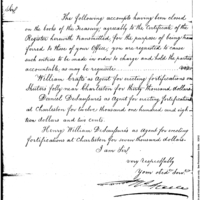 Sir,
The following accounts having been closed
on the books of the Treasury, agreeably to the Certificate of the
Register herewith transmitted, for the purpose of being trans
ferred to those of your Office; you are requested to cause
such entries to be made in order to charge and hold the parties
accountable, as may be requisite.
William Crafts as Agent for erecting fortifications on
Shutes folly near Charleston for thirty thousand dollars.
Daniel DeSaussure as Agent for erecting fortifications
at Charleston for twelve thousand one hundred and eigh
teen dollars and ten cents.
Henry William DeSaussure as Agent for erecting
fortifications at Charleston for seven thousand dollars.
I am Sir
very respectfully
Your obdt. Servt.